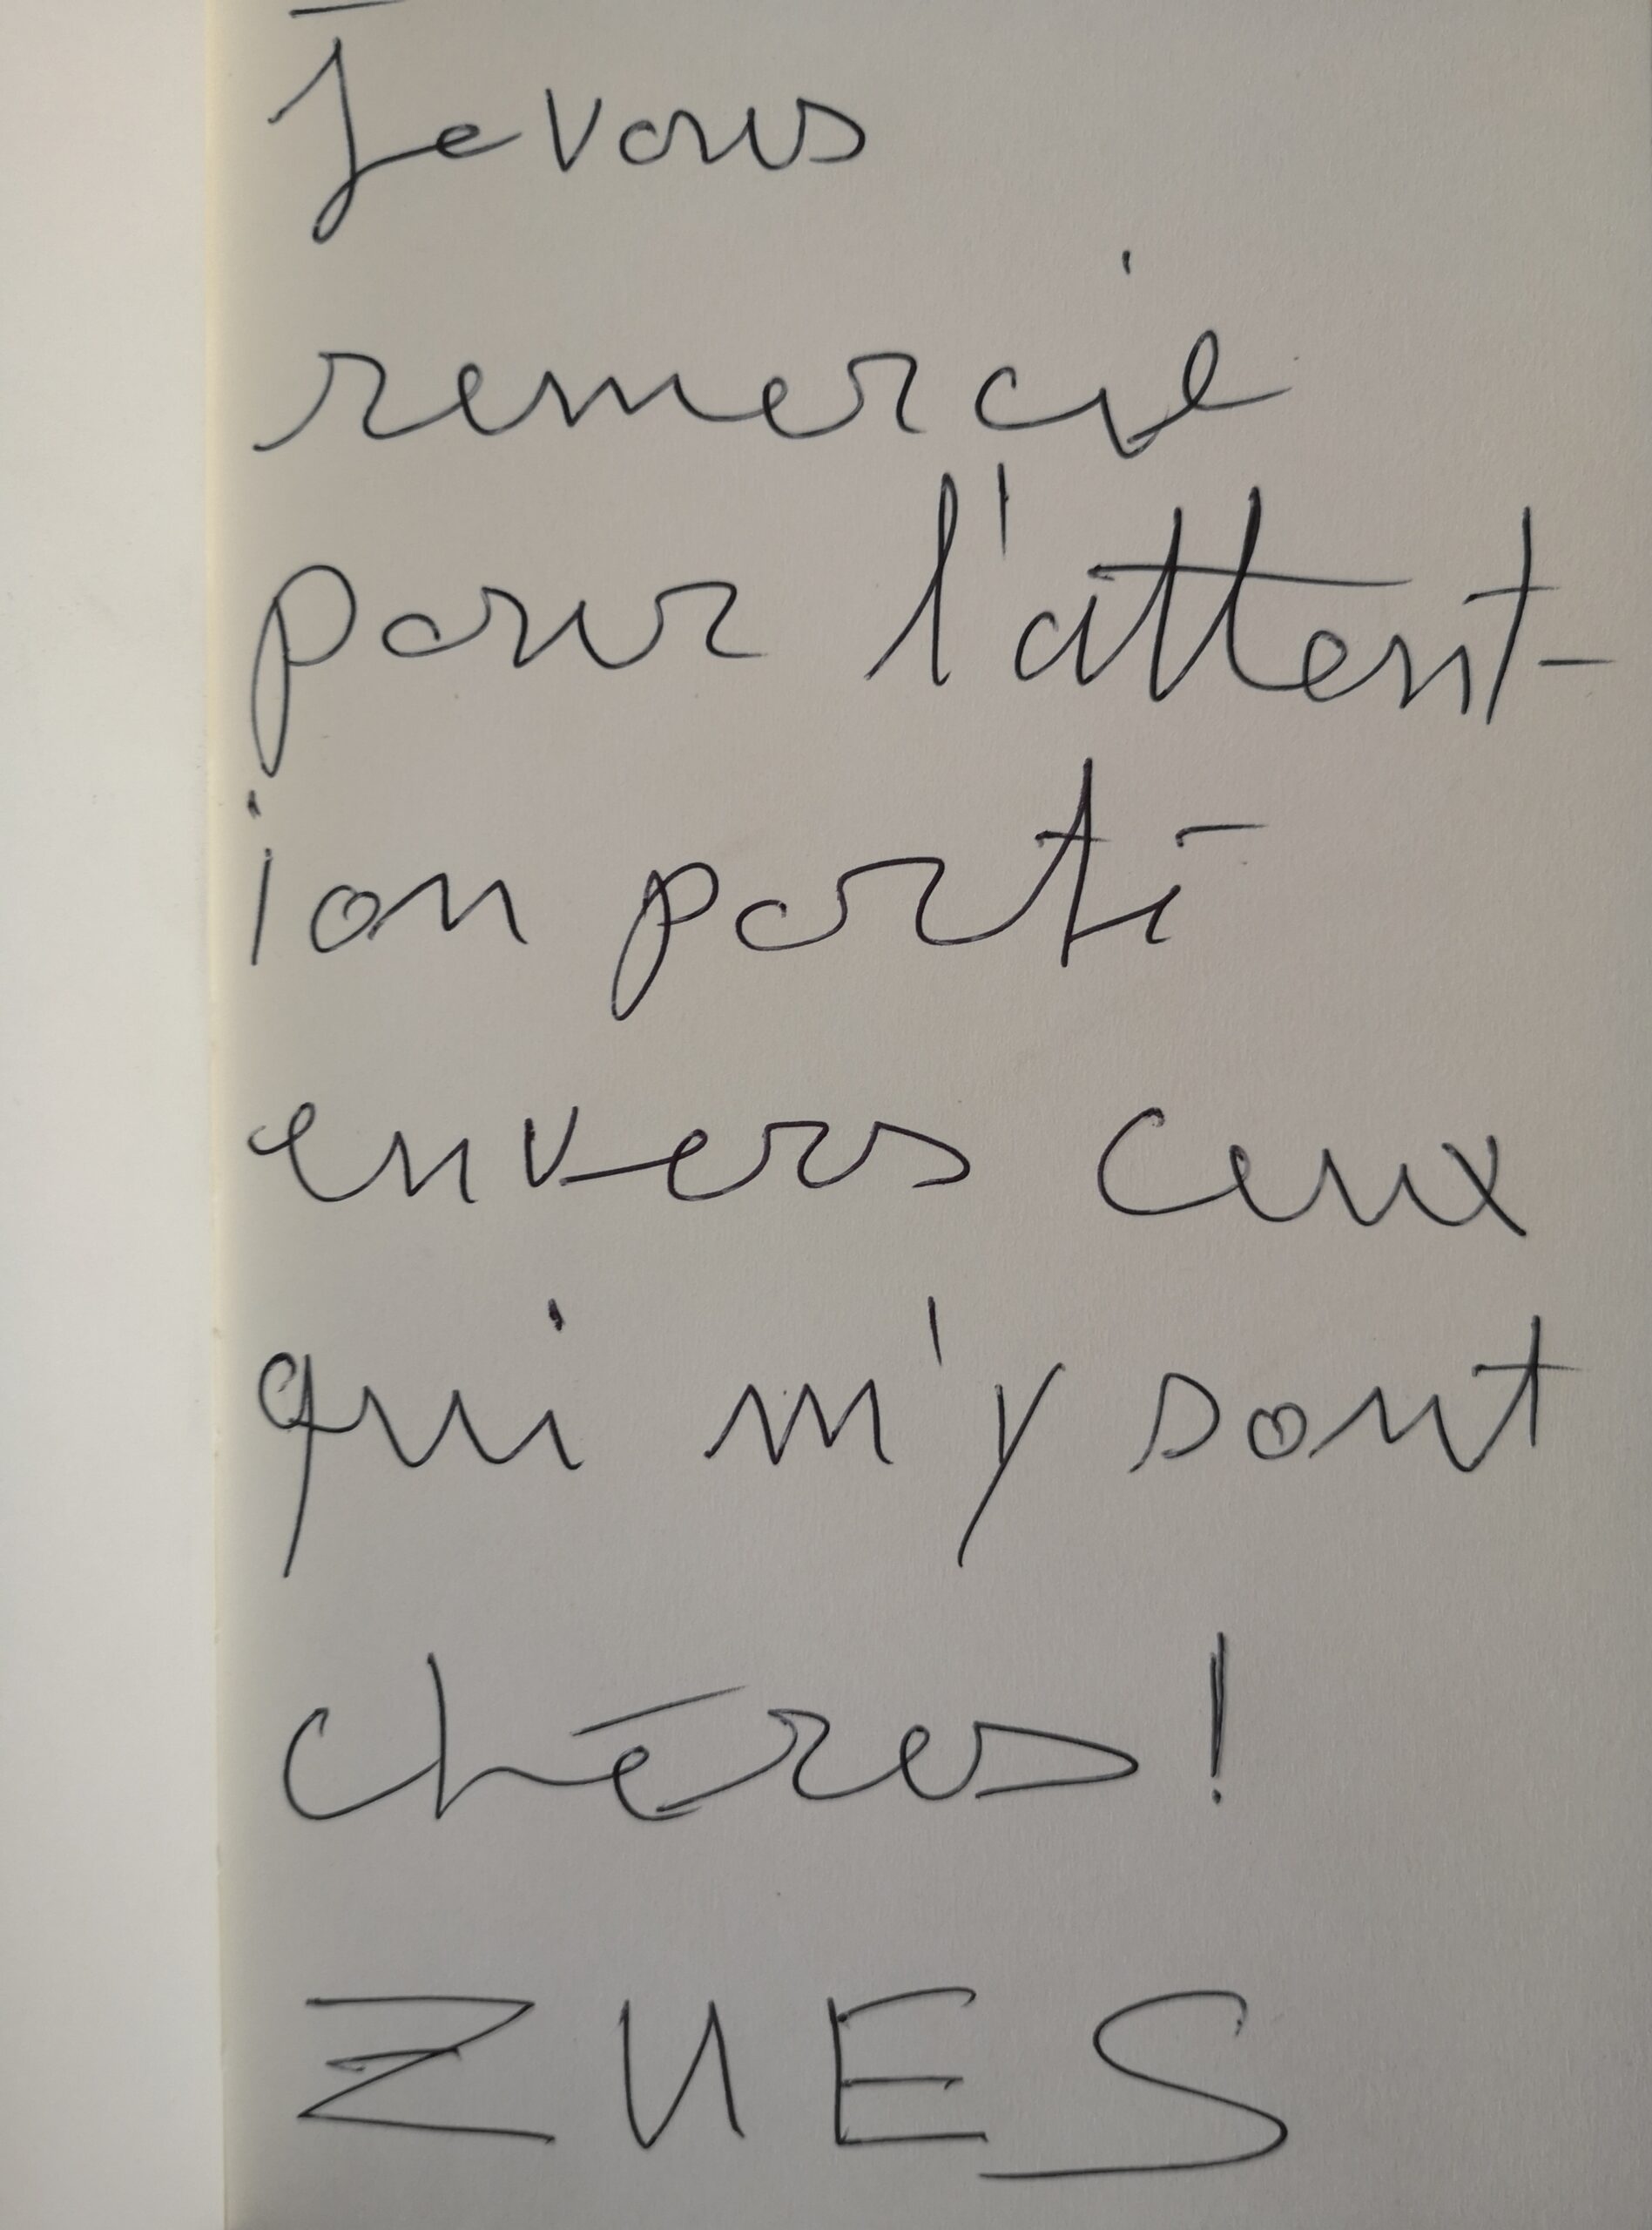 Je vous
remercie
pour l'attent-
ion porté
envers ceux
qui m'y sont
chères !
ZUES